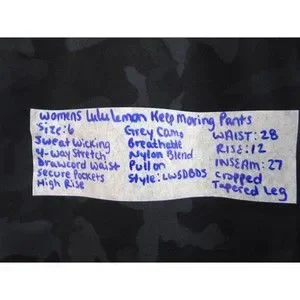 womens lululemon Keep Moving Pants
Size: 6
Sweat Wicking
4-way Stretch
Drawcord Waist
Secure Pockets
High Rise
Grey Camo
Breathable
Nylon Blend
Pull on
Style: LW5DBDS
WAIST: 28
RISE: 12
INSEAM: 27
Cropped
Tapered Leg